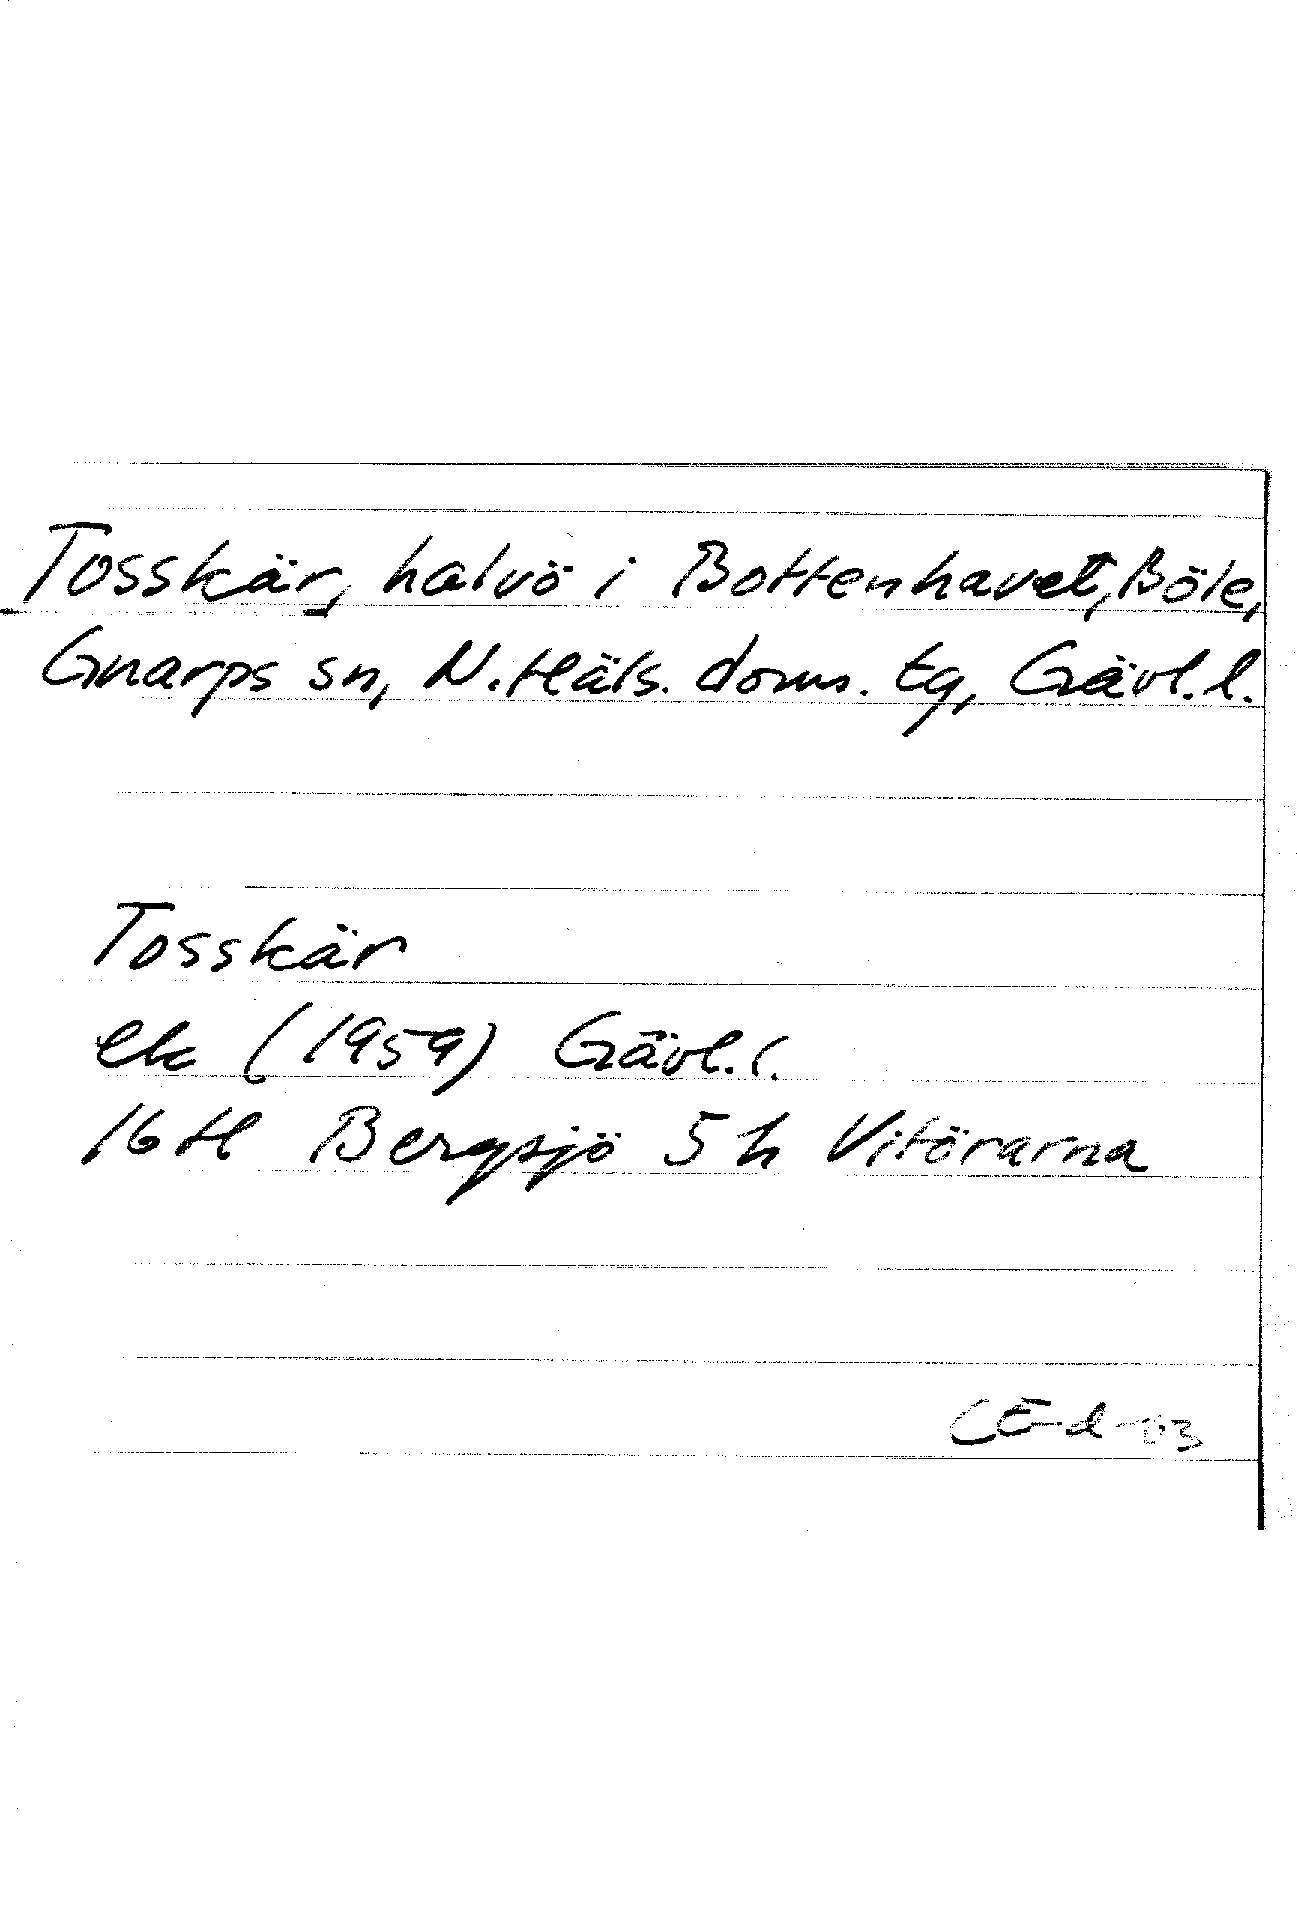 Tosskär, halvö i Bottenhavet, Böle,
Gnarps sn, N. Häls. doms. tg, Gävl. l.
Tosskär
ek (1959) Gävl. l.
16 H Bergsjö 5 h Vitörarna
CE-d-83